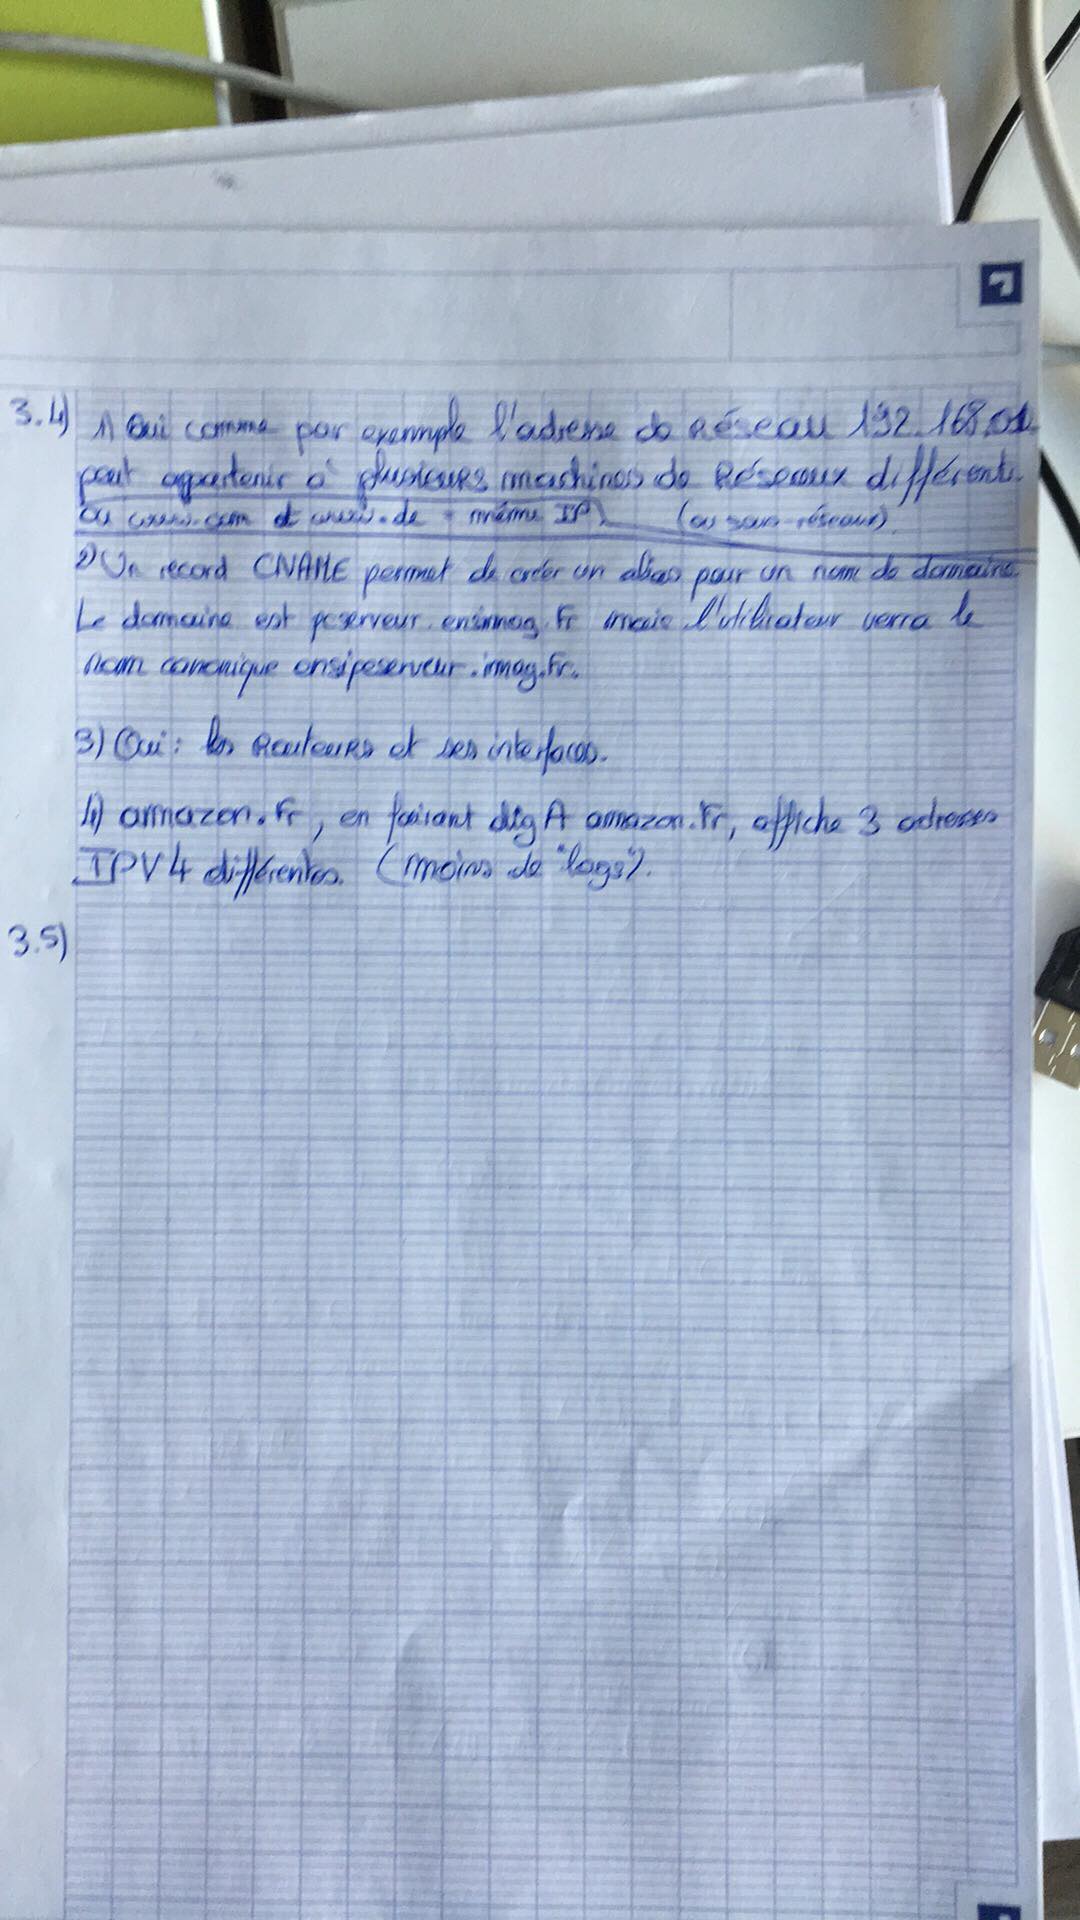 3.4) 1) Oui comme par exemple l'adresse do Réseau 192.168.0.1
peut appartenir à plusieurs machines de Réseaux différents
ou .com et .de = même IP) (ou sous-réseaux).
2) Un record CNAME permet de créer un alias pour un nom de domaine.
Le domaine est pcserveur.ensimag.fr mais l'utilisateur verra le
nom canonique ensipcserveur.imag.fr.
3) Oui : les Routeurs et ses interfaces.
4) amazon.fr, en faisant dig A amazon.fr, affiche 3 adresses
IPV4 différentes. (moins de "logs").
3.5)